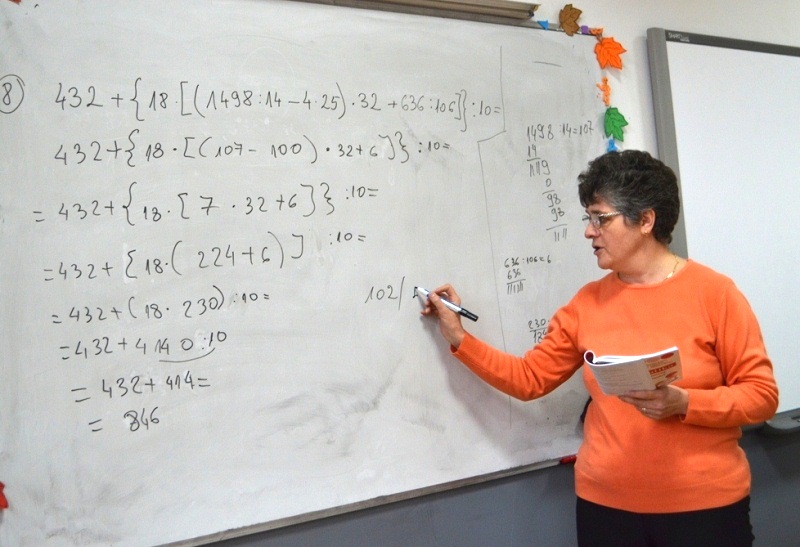 8) 432 + { 18 · [ ( 1498 : 14 - 4 · 25 ) · 32 + 636 : 106 ] } : 10 =
432 + { 18 · [ ( 107 - 100 ) · 32 + 6 ] } : 10 =
= 432 + { 18 · [ 7 · 32 + 6 ] } : 10 =
= 432 + [ 18 · ( 224 + 6 ) ] : 10 =
= 432 + ( 18 · 230 ) : 10 =
= 432 + 4140 : 10
= 432 + 414 =
= 846
102/
1498 14 = 107
14
119
0
98
98
636 : 106 = 6
636
230